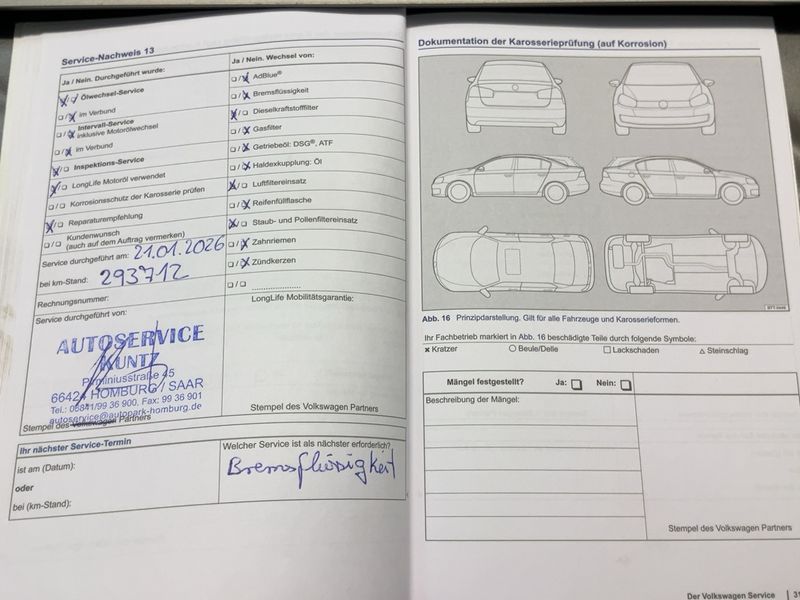 Service-Nachweis 13
Ja / Nein. Durchgeführt wurde:
Ölwechsel-Service
im Verbund
Intervall-Service
inklusive Motorölwechsel
im Verbund
Inspektions-Service
LongLife Motoröl verwendet
Korrosionsschutz der Karosserie prüfen
Reparaturempfehlung
Kundenwunsch
(auch auf dem Auftrag vermerken)
Service durchgeführt am: 21.01.2026
bei km-Stand: 293712
Rechnungsnummer:
Service durchgeführt von:
AUTOSERVICE
KUNTZ
Pirminiusstraße 45
66424 HOMBURG / SAAR
Tel.: 06841/99 36 900, Fax: 99 36 901
autoservice@autopark-homburg.de
Stempel des Volkswagen Partners
Ja / Nein. Wechsel von:
AdBlue®
Bremsflüssigkeit
Dieselkraftstofffilter
Gasfilter
Getriebeöl: DSG®, ATF
Haldexkupplung: Öl
Luftfiltereinsatz
Reifenfüllflasche
Staub- und Pollenfiltereinsatz
Zahnriemen
Zündkerzen
LongLife Mobilitätsgarantie:
Stempel des Volkswagen Partners
Ihr nächster Service-Termin
ist am (Datum):
oder
bei (km-Stand):
Welcher Service ist als nächster erforderlich?
Bremsflüssigkeit
Dokumentation der Karosserieprüfung (auf Korrosion)
Abb. 16 Prinzipdarstellung. Gilt für alle Fahrzeuge und Karosserieformen.
Ihr Fachbetrieb markiert in Abb. 16 beschädigte Teile durch folgende Symbole:
× Kratzer ○ Beule/Delle □ Lackschaden △ Steinschlag
Mängel festgestellt? Ja: □ Nein: □
Beschreibung der Mängel:
Stempel des Volkswagen Partners
Der Volkswagen Service | 31